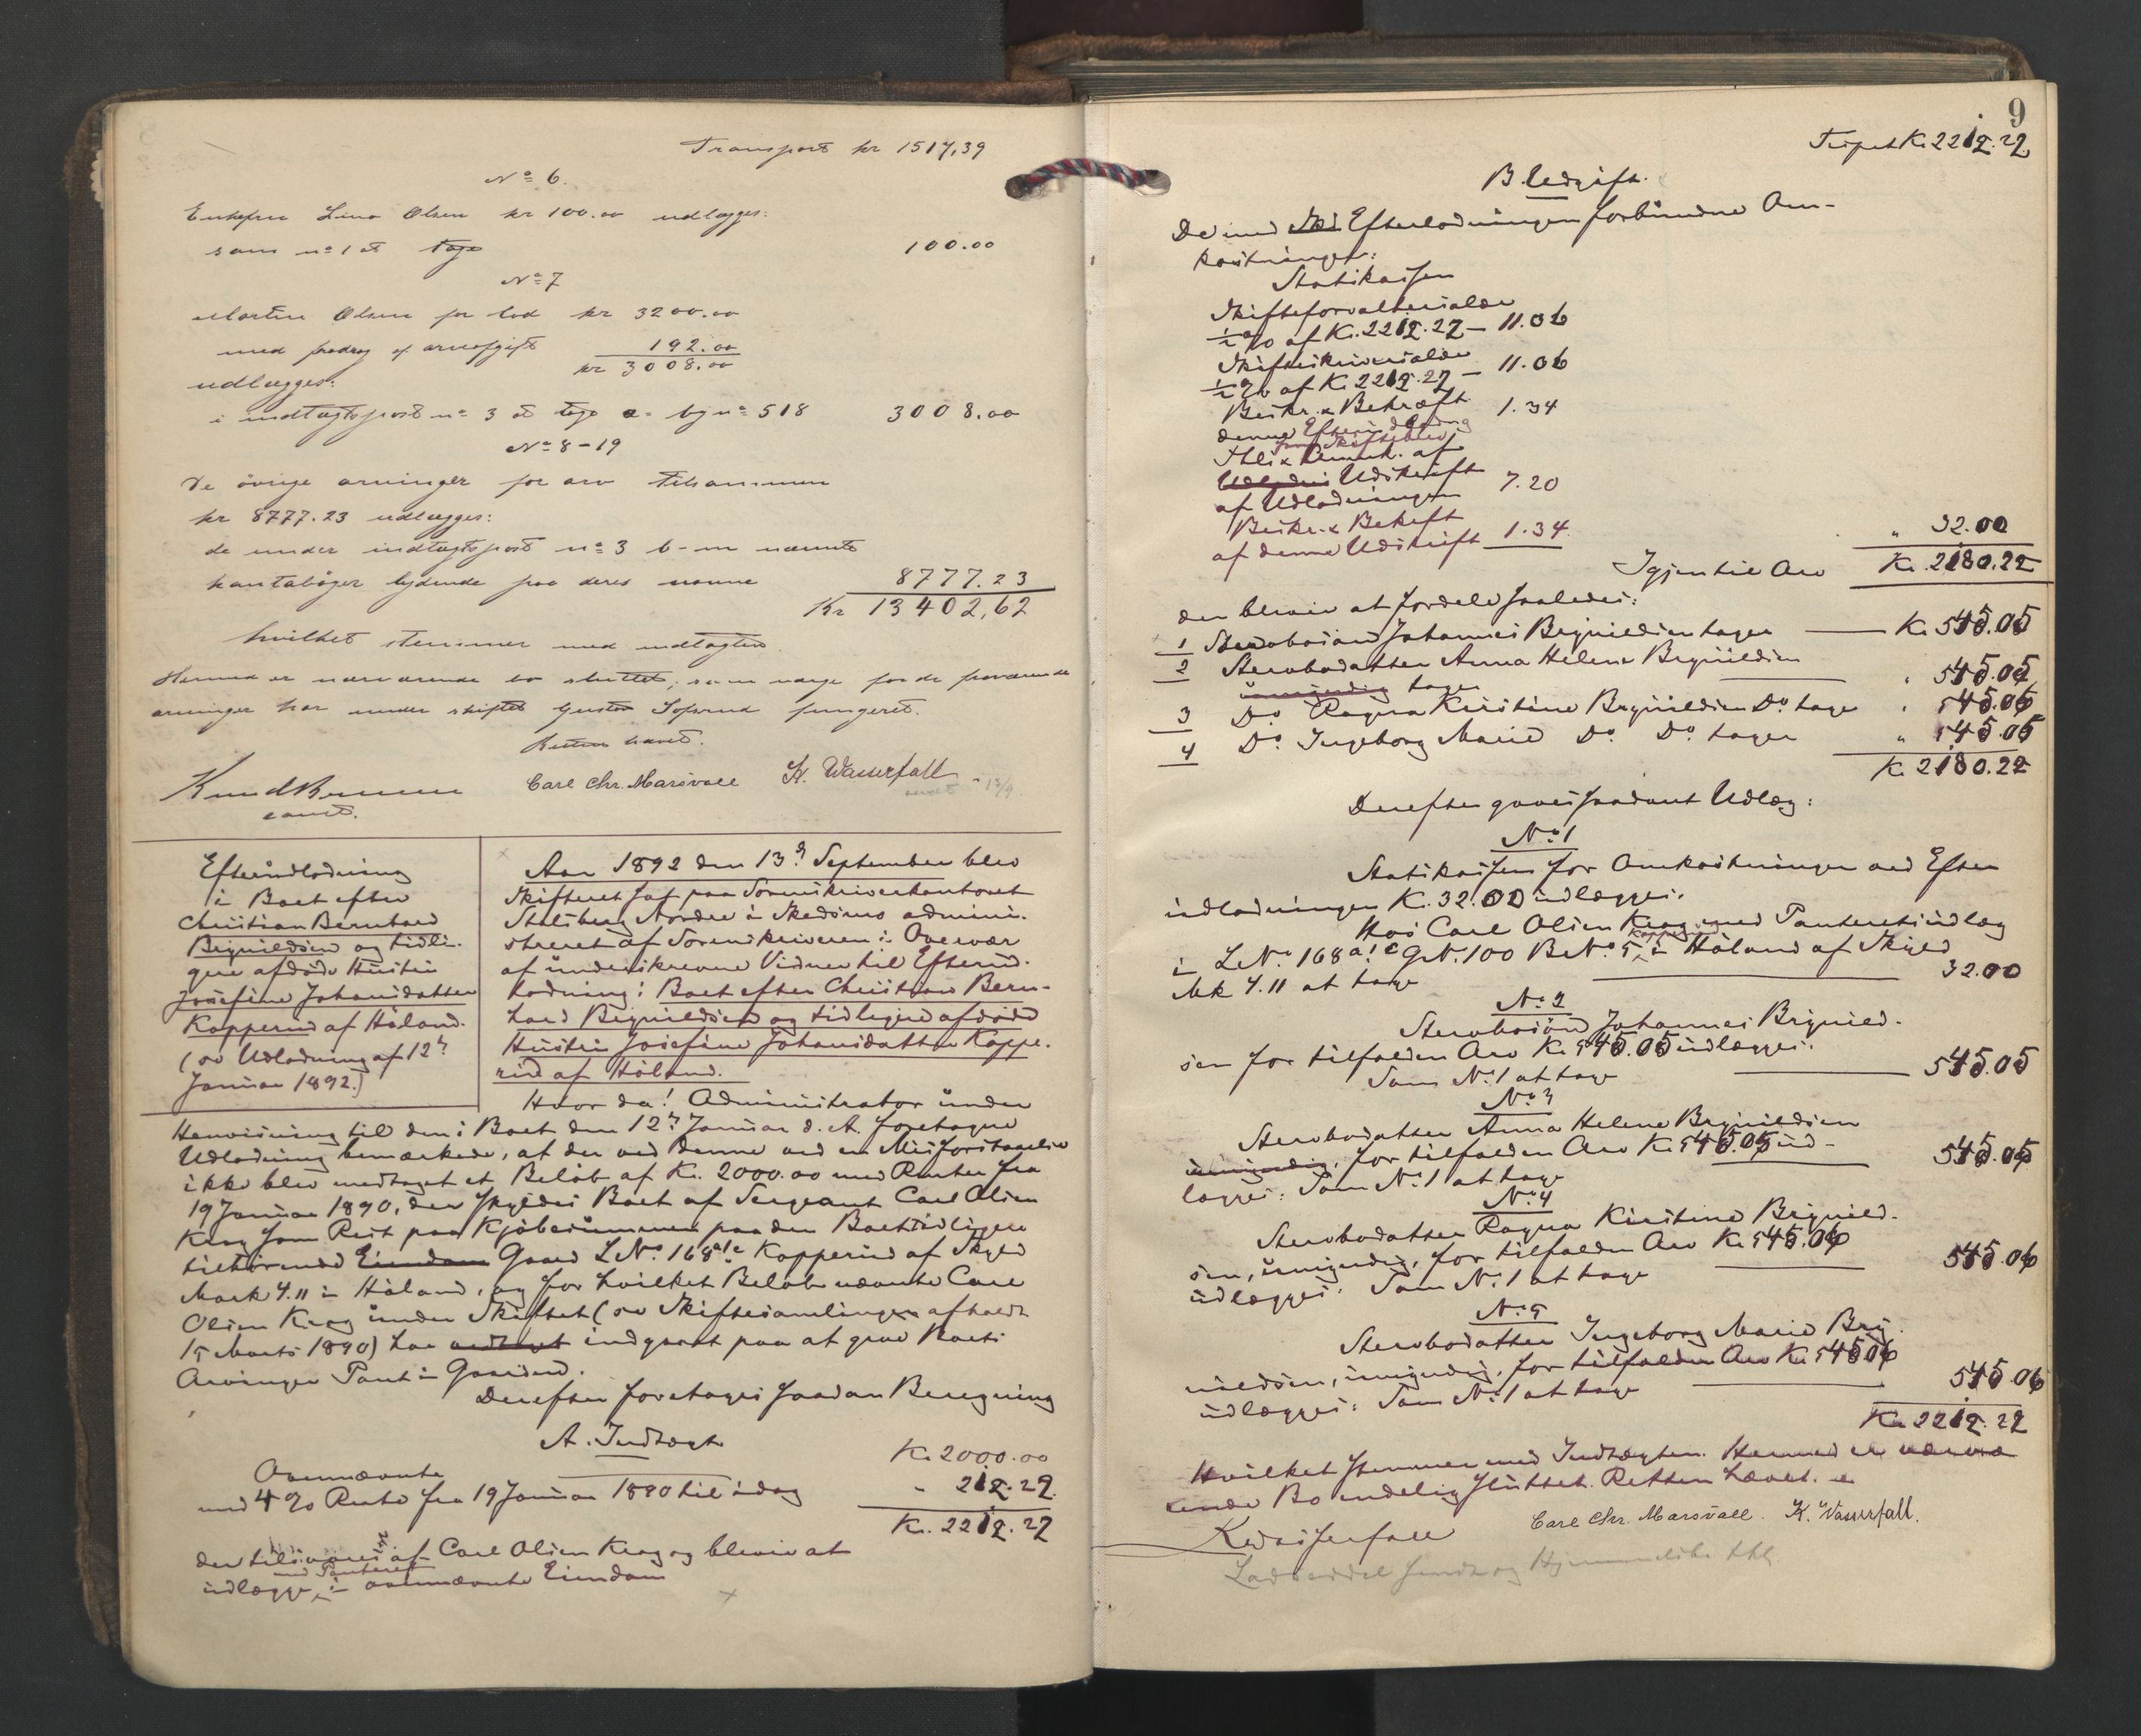 Transport kr 1517,39
No 6.
Enkefru Lina Olsen kr 100.00 udlægges:
som no 1 at tage 100.00
No 7
Martin Olsen for lod kr 3200.00
med fradrag af arveafgift 192.00
kr 3008.00
udlægges:
i indtægtspost no 3 at tage a. bg no 518 3008.00
No 8-19
De övrige arvinger for arv tilsammen
kr 8777.23 udlægges:
de under indtægtspost no 3 b-m nævnte
bankbøger lydende paa deres navne 8777.23
Kr 13402,62
hvilket stemmer med indtægten.
Hermed er nærværende bo sluttet; som værge for de fraværende
arvinger har under skiftet Gustav Toprud fungeret.
Retten hævet.
Carl Chr. Marsvall K. Wasserfall
const.
Efterudlodning
i Boet efter
Christian Bernhard
Brynildsen og tidli-
gere afdöde Hustru
Josefine Johansdatter
Kopperud af Höland.
(se Udlodning af 12te
Januar 1892.)
Aar 1892 den 13de September blev
Skifteret sat paa Sorenskriverkontoret
Stalsberg Nordre i Skedsmo admini-
streret af Sorenskriveren i Overvær
af underskrevne Vidner til Efterud-
lodning i Boet efter Christian Bern-
hard Brynildsen og tidligere afdöde
Hustru Josefine Johansdatter Koppe-
rud af Höland.
Hvor da! Administrator under
Henvisning til den i Boet den 12te Januar d. A. foretagne
Udlodning bemærkede, at der ved denne ved en Misforstaaelse
ikke blev medtaget et Belöb af Kr. 2000.00 med Renter fra
19 Januar 1890, der skyldes Boet af Sergeant Carl Olsen
Krog som Rest paa Kjöbesummen paa den Boet tidligere
tilhörende Eiendom Gaard L No 168 a1c Kopperud af Skyld
Mark 4.11 i Höland, og for hvilket Belöb nævnte Carl
Olsen Krog under Skiftet (se Skiftesamlingen afholdt
15 Marts 1890) har vedtaget indgaaet paa at give Boets
Arvinger Pant i Gaarden.
Derefter foretages saadan Beregning
A. Indtægt
Ovennævnte Kr. 2000.00
med 4 % Rente fra 19 Januar 1890 til idag " 212.22
Kr. 2212.22
der tilsvares af Carl Olsen Krog og bliver at
med Panteret
udlægge i ovennævnte Eiendom
9
Trspt Kr. 2212.22
B. Udgift.
De med Skl Efterlodningen forbundne Om-
kostninger:
Statskassen
Skifteforvaltersalær
1/2 % af Kr. 2212.22 — 11.06
Skifteskriversalær
1/2 % af Kr. 2212.22 — 11.06
Beskr. & Bekræft. 1.34
denne Efterudlodning
af
Udskrift
af Udlodningen 7.20
Beskr. & Bekræft
af denne Udskrift 1.34
" 32.00
Igjen til Arv Kr. 2180.22
der bliver at fordele saaledes:
1 Stervbosön Johannes Brynildsen tager Kr. 545.05
2 Stervbodatter Anna Helene Brynildsen
umyndig tager " 545.05
3 Do Ragna Kirstine Brynildsen Do tager " 545.06
4 Do Ingeborg Marie Do Do tager " 545.06
Kr. 2180.22
Derefter gaves saadant Udlæg:
No 1
Statskassen for Omkostninger ved Efter-
udlodningen Kr. 32.00 udlægges:
Hos Carl Olsen Krog med Panteretsudlæg
i L No 168 a1c G No. 100 B No. 5 Kopperud i Höland af Skyld
Mk 4.11 at tage 32.00
No 2
Stervbosön Johannes Brynild-
sen for tilfalden Arv Kr. 545.05 udlægges:
Som No 1 at tage 545.05
No 3
Stervbodatter Anna Helene Brynildsen
umyndig, for tilfalden Arv Kr. 545.05 ud-
lægges: Som No 1 at tage 545.05
No 4
Stervbodatter Ragna Kirstine Brynild-
sen, umyndig, for tilfalden Arv Kr. 545.06
udlægges: Som No 1 at tage 545.06
No 5
Stervbodatter Ingeborg Marie Bry-
nildsen, umyndig, for tilfalden Arv Kr. 545.06
udlægges: Som No 1 at tage 545.06
Kr. 2212.22
Hvilket stemmer med Indtægten. Hermed er nærvæ-
rende Bo endelig sluttet. Retten hævet.
Carl Chr. Marsvall. K. Wasserfall.
Lodseddel sendt og